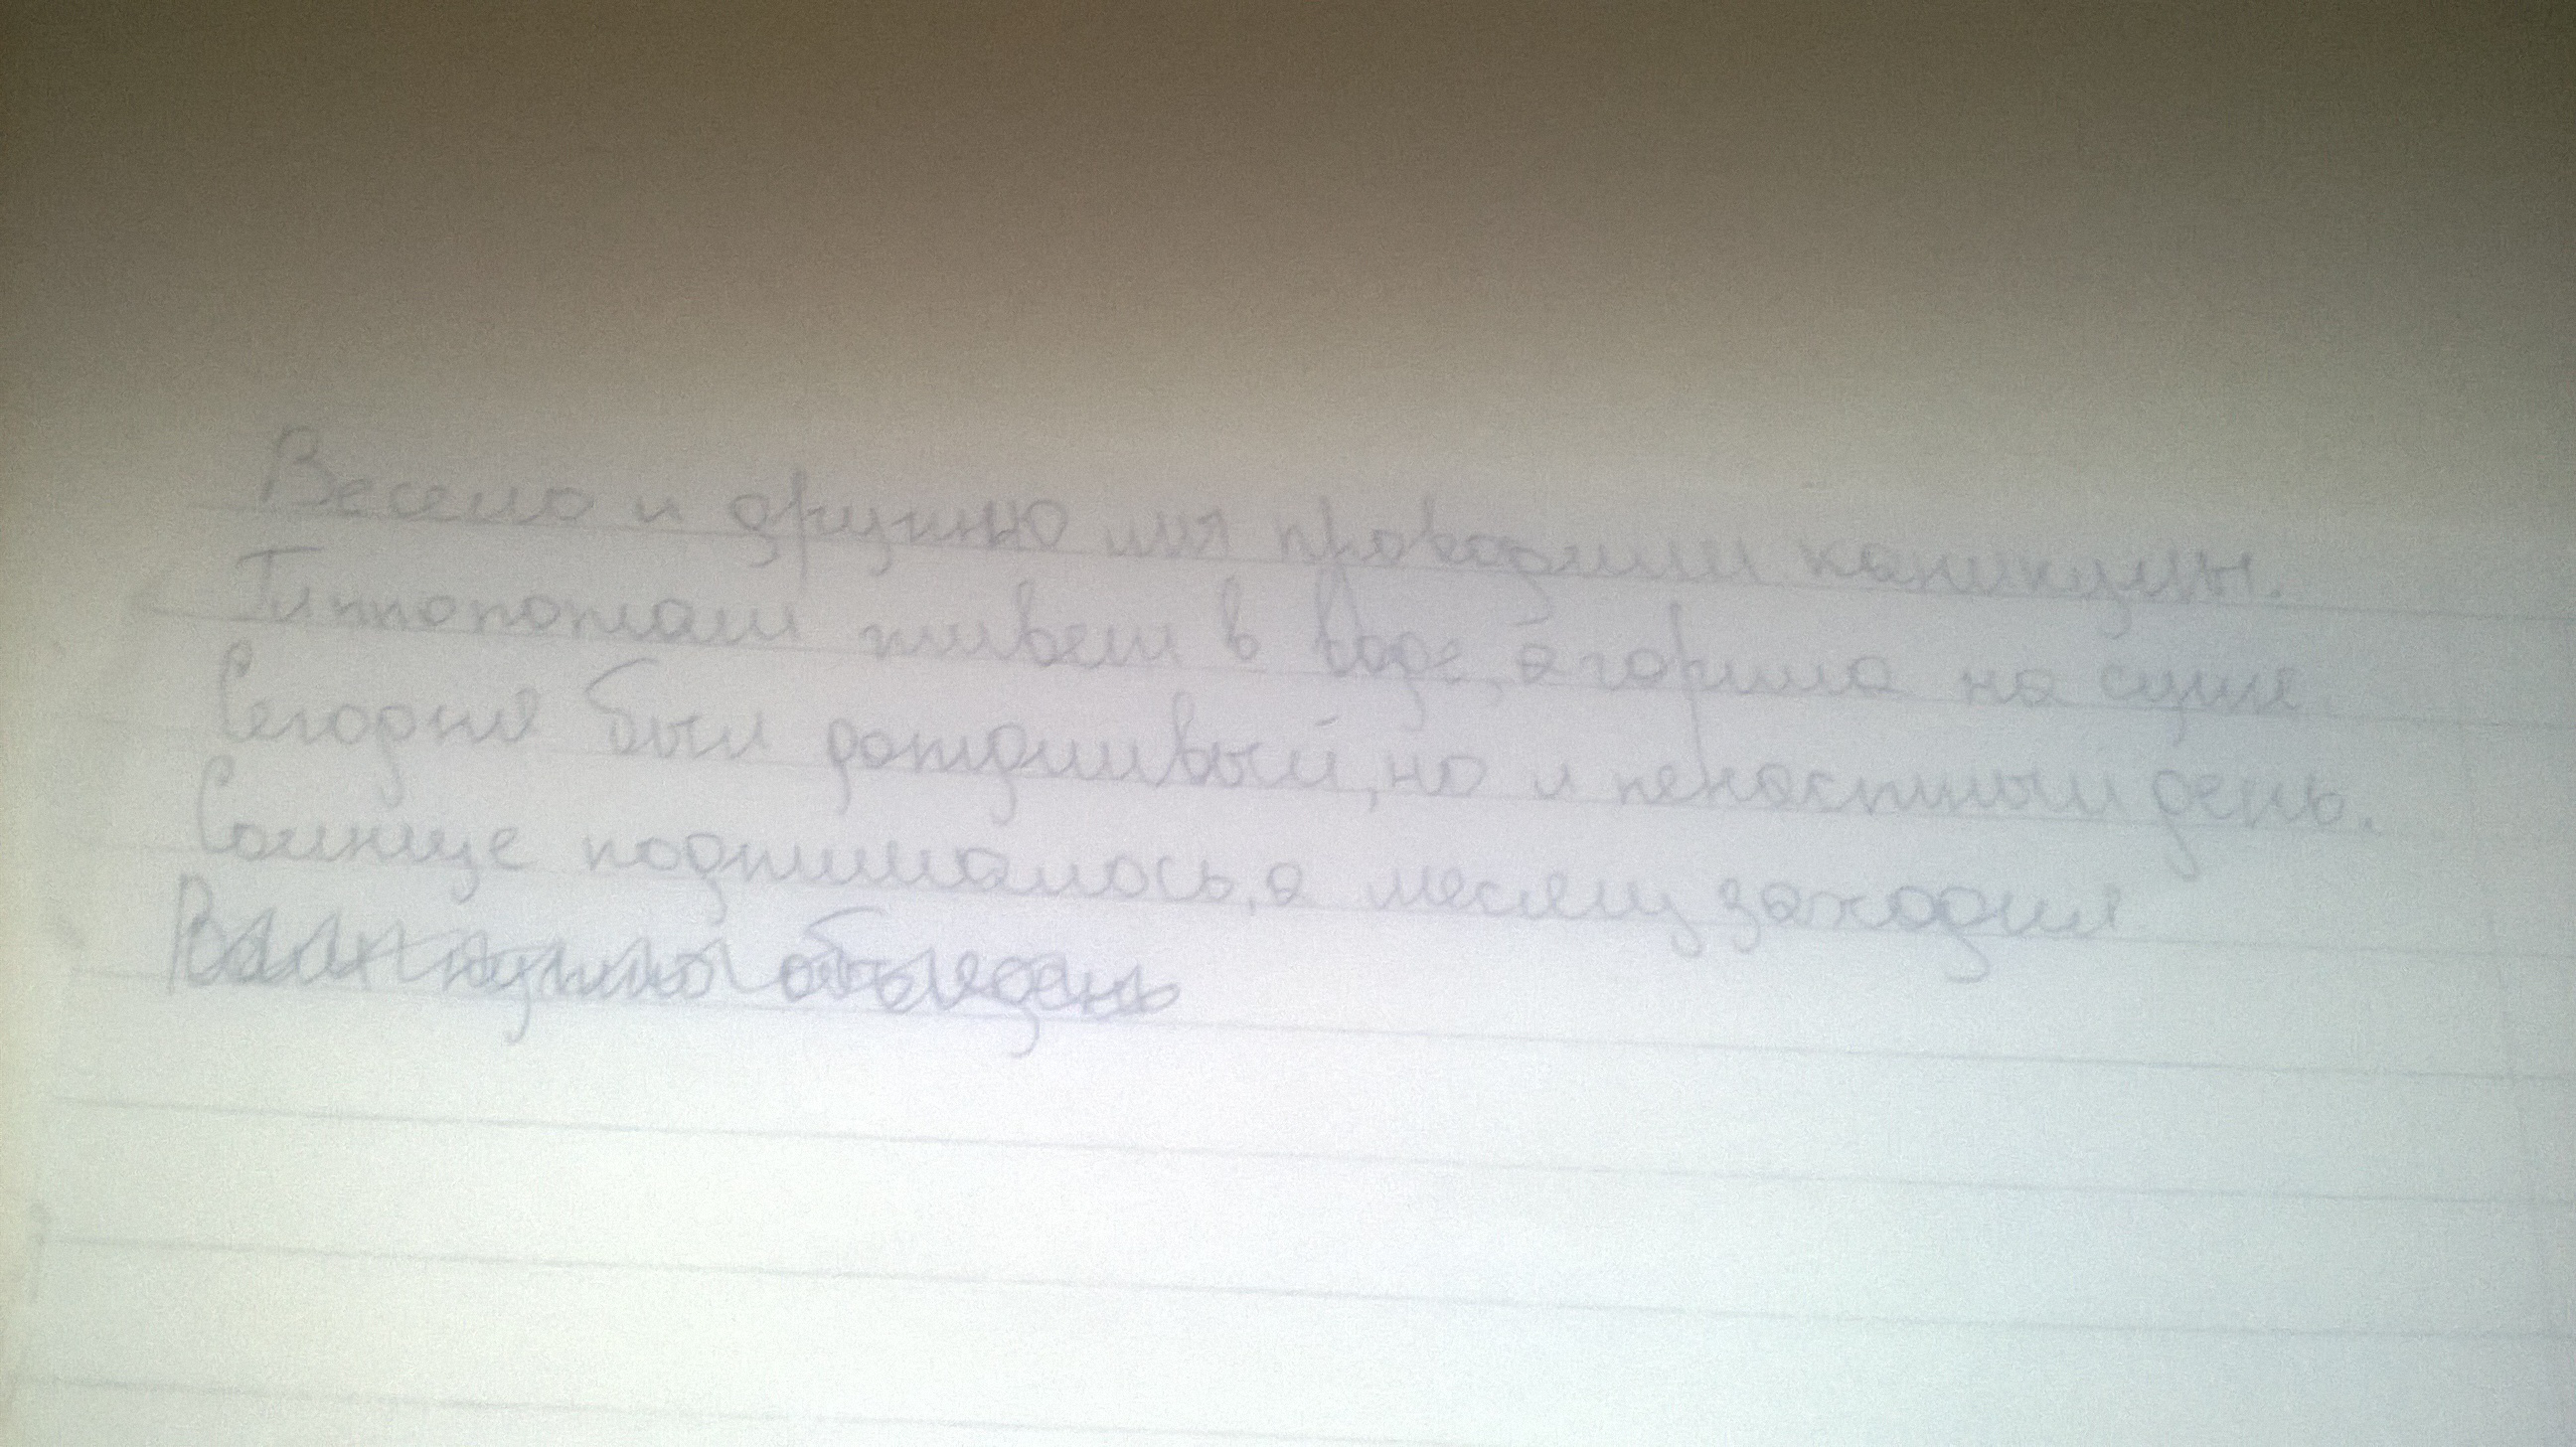 Весело и дружно мы проводили каникулы.
Гиппопотам живет в воде, а горила на суше.
Сегодня был дождливый, но и ненастный день.
Солнце поднималось, а месяц заходил